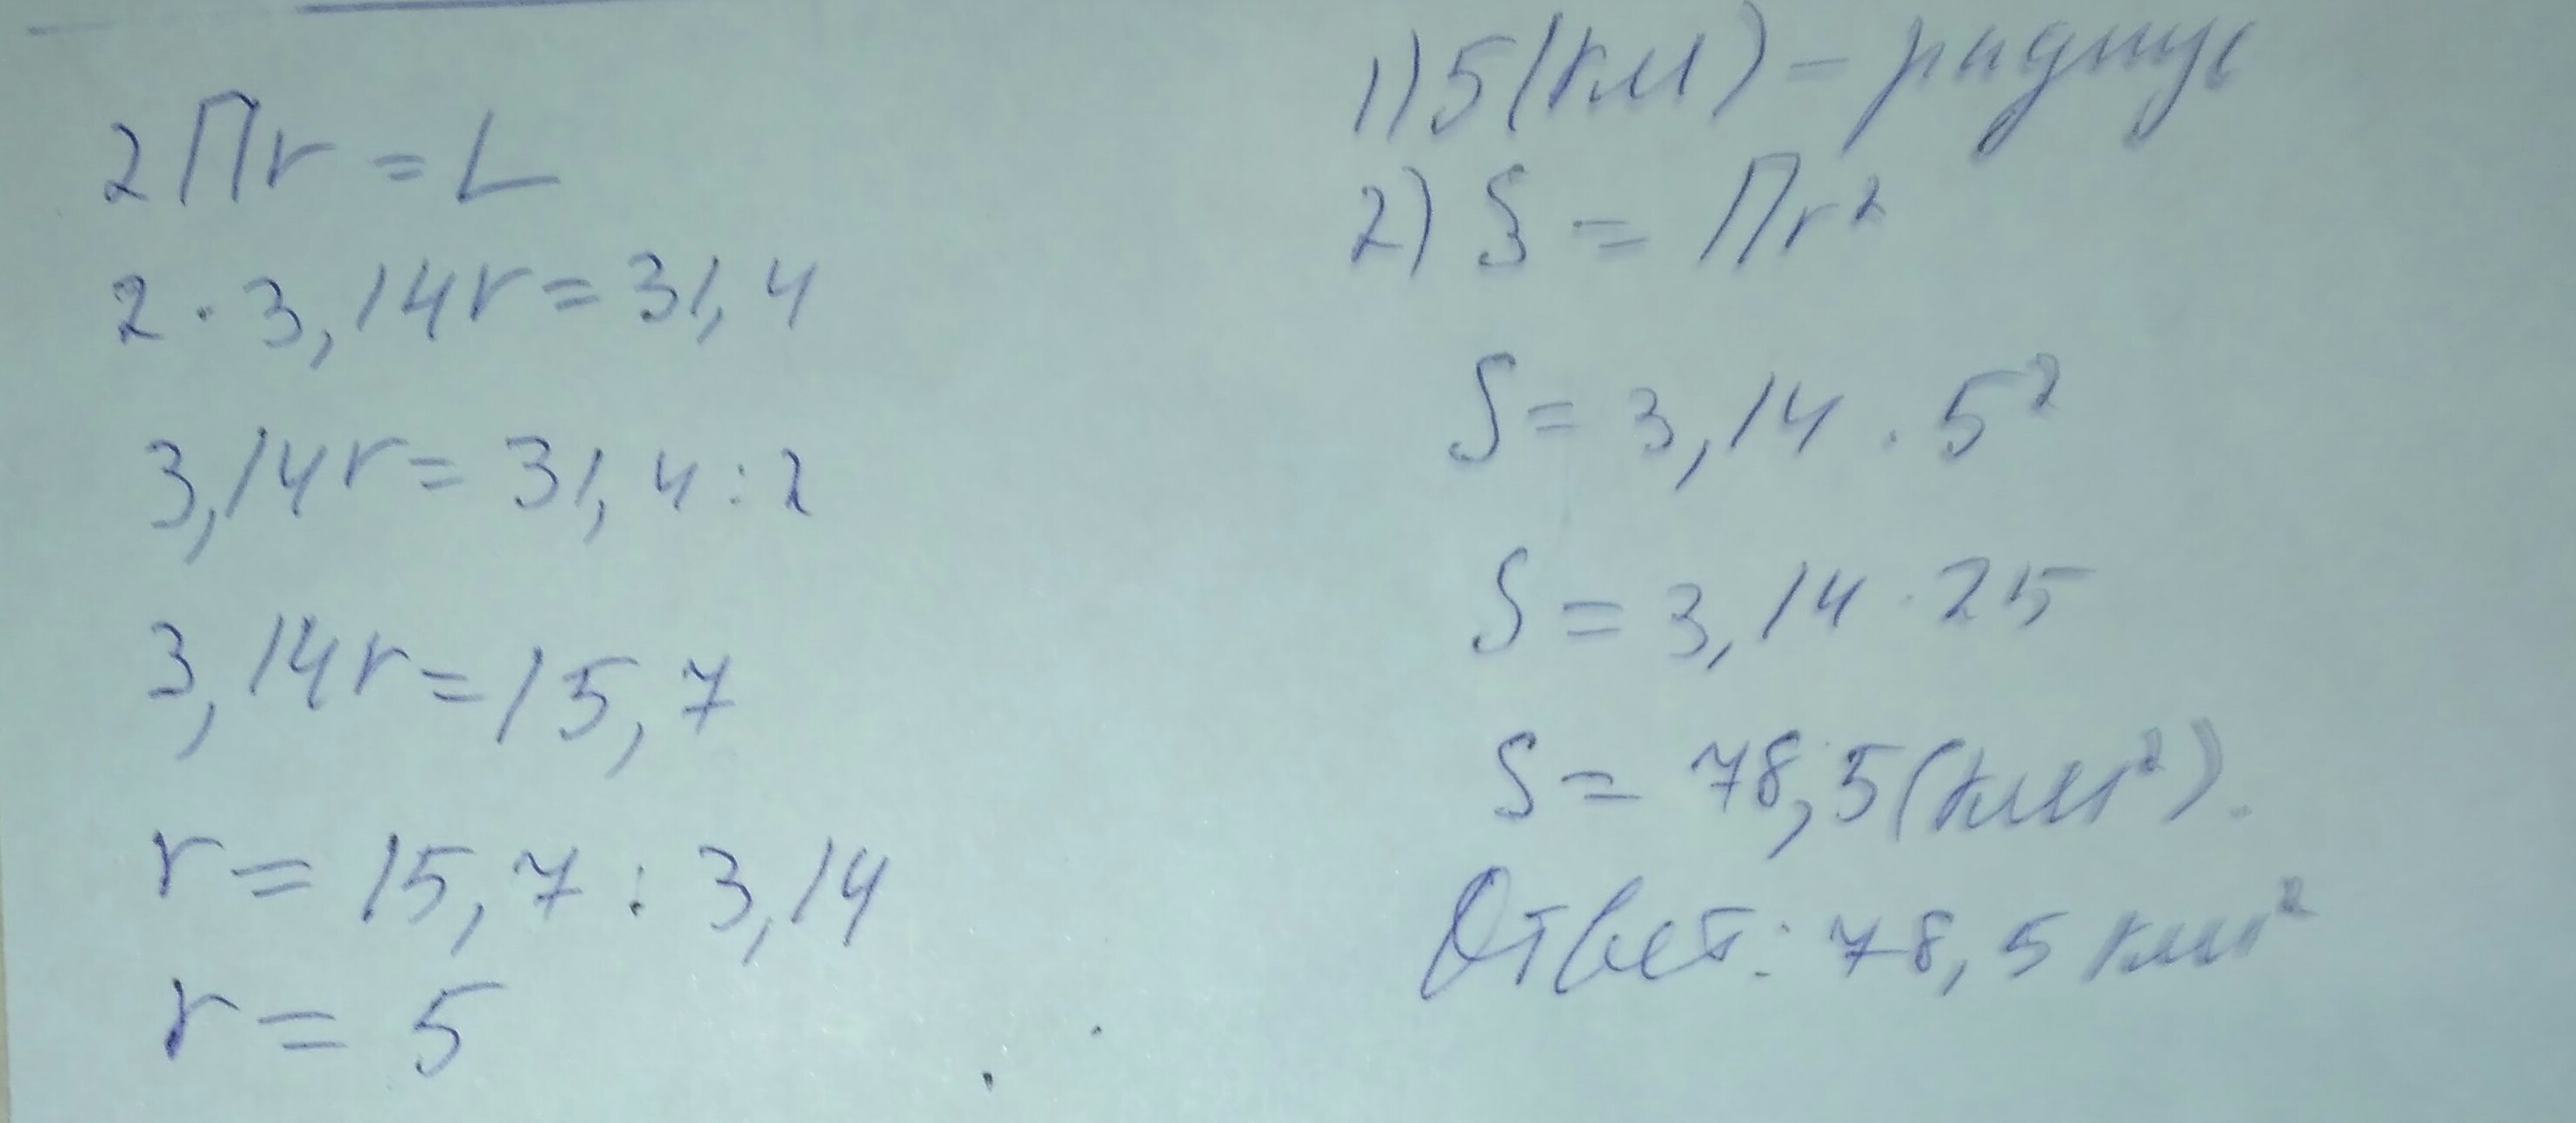 2Пr = L
2 · 3,14r = 31,4
3,14r = 31,4 : 2
3,14r = 15,7
r = 15,7 : 3,14
r = 5
1) 5 (км) - радиус
2) S = Пr²
S = 3,14 · 5²
S = 3,14 · 25
S = 78,5 (км²).
Ответ: 78,5 км²